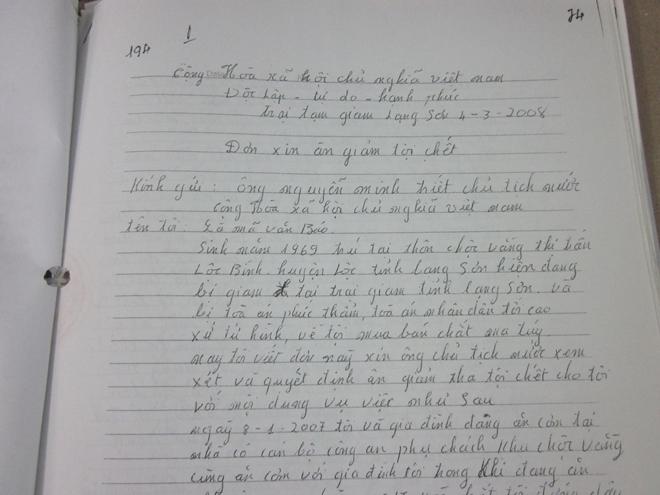 194 1 74
Cộng Hòa xã hội chủ nghĩa việt nam
Độc lập - tự do - hanh phúc
trại tạm giam Lạng Sơn 4-3-2008
Đơn xin ân giảm tội chết
Kính gửi: ông nguyễn minh triết chủ tịch nước
cộng Hòa xã hội chủ nghĩa việt nam
tên tôi: Là mã văn Báo.
Sinh năm 1969 trú tại thôn chộc vằng thị trấn
Lộc Bình huyện Lộc tỉnh Lang Sơn hiện đang
bị giam tại trai giam tỉnh lang Sơn. và
bị toà án phúc thẩm, toà án nhân dân tối cao
xử tử hình, về tội mua bán chất ma túy.
nay tôi viết đơn naỳ xin ông chủ tịch nước xem
xét và quyết định ân giảm tha tội chết cho tôi
với nội dung vụ việc như Sau
ngaỳ 8-1-2007 tôi và gia đình đang ăn cơm tại
nhà có cán bộ công an phụ chách khu chộc vằng
cũng ăn cơm với gia đình tôi trong khi đang ăn